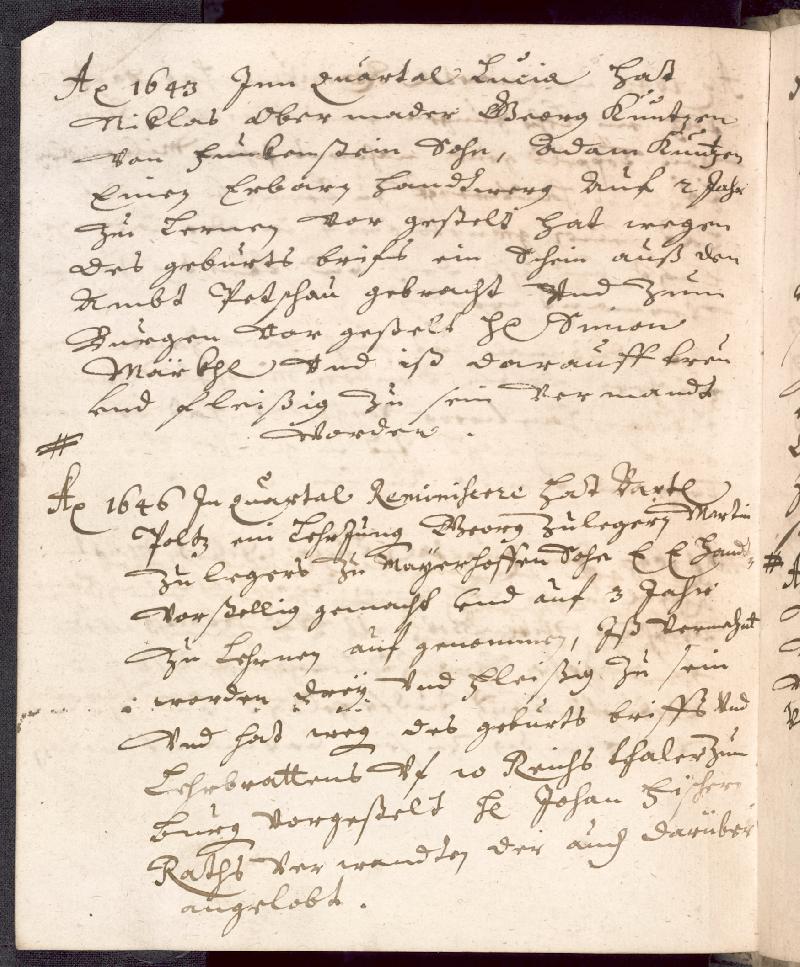 Ao 1643 Inn quartal Lucia hatt
Niklas Obermader Georg Kuntzen
Von Funkenstein Sohn, Adam Kuntzen
Einen Erbarn Handtwerg auf 2 Jahr
Zu Lernen Vor gestelt hat wegen
des geburts brifs ein Schein auß den
Ambt Petschau gebracht Vnd Zum
Burgen Vor gestelt H Simon
Märkhl Vnd ist darauff treu
Vnd fleißig Zu sein Vermandt
Worden.
Ao 1646 In quartal Reminiscere hat Bartl
Poltz ein LehrJung Georg Zulegern Martin
Zulegers Zu Mayerhoffen Sohn E E Handt
Vorstellig gemacht Vnd auf 3 Jahr
Zu Lehrnen auf genommen, Ist Vermahnt
worden drey Vnd fleißig Zu sein
Vnd hat weg des geburts briffs Vnd
Lehrbrattens Vf 10 Reichs thaler Zum
burg Vorgestelt H Johan Fischer
Raths Verwandten der auch darüber
angelobt.